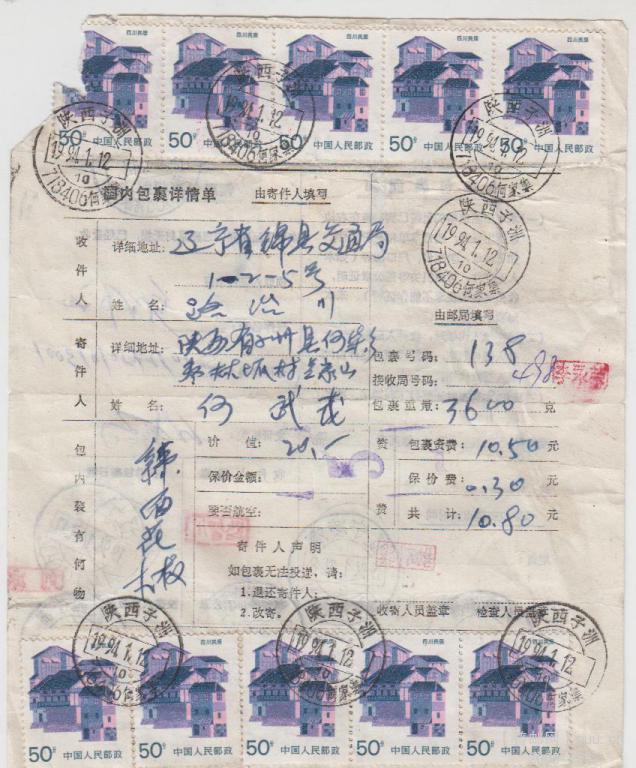 四川民居 四川民居 四川民居 四川民居
50分 50分 50分 50分 50分
中国人民邮政 中国人民邮政 中国人民邮政 中国人民邮政
陕西子洲 1994.1.12 10 718406何家集
陕西子洲 1994.1.12 10 718406
陕西子洲 1994.1.12 10 718406何家集
陕西子洲 1994.1.12 10 718406何家集
国内包裹详情单 由寄件人填写
收件人 详细地址: 辽宁省锦县交通局
1-2-5号
姓名:
由邮局填写
寄件人 详细地址: 陕西省子洲县何家
包裹号码: 138
接收局号码: 498
姓名: 何武
包裹重量: 3600 克
包内装有何物
价值: 20.-
资 包裹资费: 10.50 元
保价金额:
保价费: 0.30 元
要否航空:
费 共计: 10.80 元
寄件人声明
如包裹无法投递,请:
1.退还寄件人;
2.改寄。
收寄人员盖章 检查人员
陕西子洲 1994.1.12 10 718406何家集
陕西子洲 1994.1.12 10 718406何家集
陕西子洲 1994.1.12 10 718406何家集
四川民居 四川民居 四川民居
50分 50分 50分 50分 50分
中国人民邮政 中国人民邮政 中国人民邮政 中国人民邮政 中国人民邮政